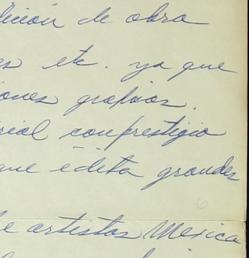 dición de obra
es etc. ya que
iones graficas.
rial con prestigio
que edita grandes
6
de artistas Mexica